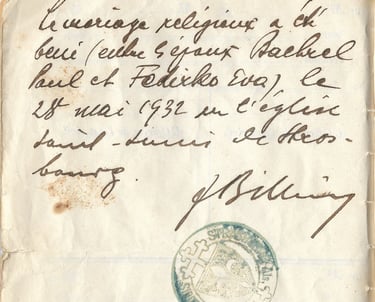 Le mariage religieux a été
béni (entre Epoux Bachrel
Paul et Fedirko Eva) le
28 mai 1932 en l'église
Saint- de Stras-
bourg.